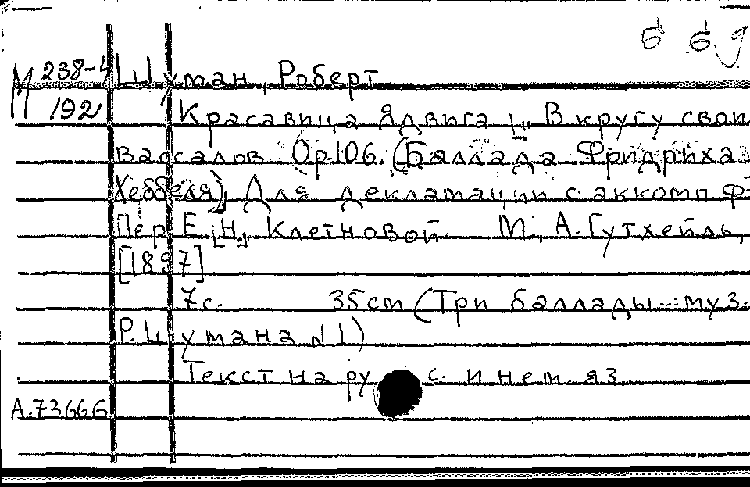 М 238-4
192
Шуман, Роберт
Красавица Ядвига ["В кругу своих
вассалов" Op106. (Баллада Фридриха
Хеббеля). Для декламации с аккомп ф-
Пер Е.[Н.] Клетновой. М., А. Гутхейль,
[1897]
7с. 35см (Три баллады муз.
Р. Шумана №1)
Текст на рус. и нем. яз
А.73666